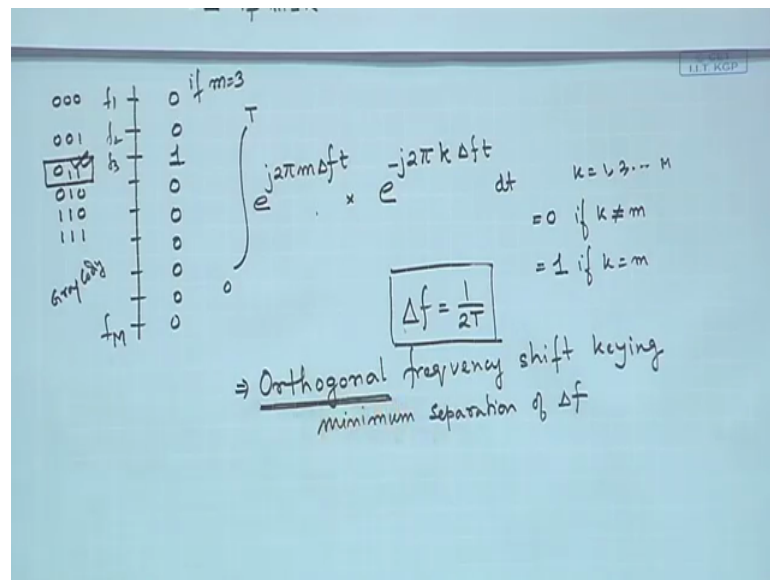 I.I.T. KGP
if m=3
000 f₁ 0
001 f₂ 0
011 f₃ 1
010 0
110 0
111 0
0
Gray Coding 0
f_M 0
∫₀ᵀ e^{j2πmΔft} × e^{-j2πkΔft} dt k=1,3... M
=0 if k≠m
=1 if k=m
Δf = 1/2T
⇒ Orthogonal frequency shift keying
minimum separation of Δf